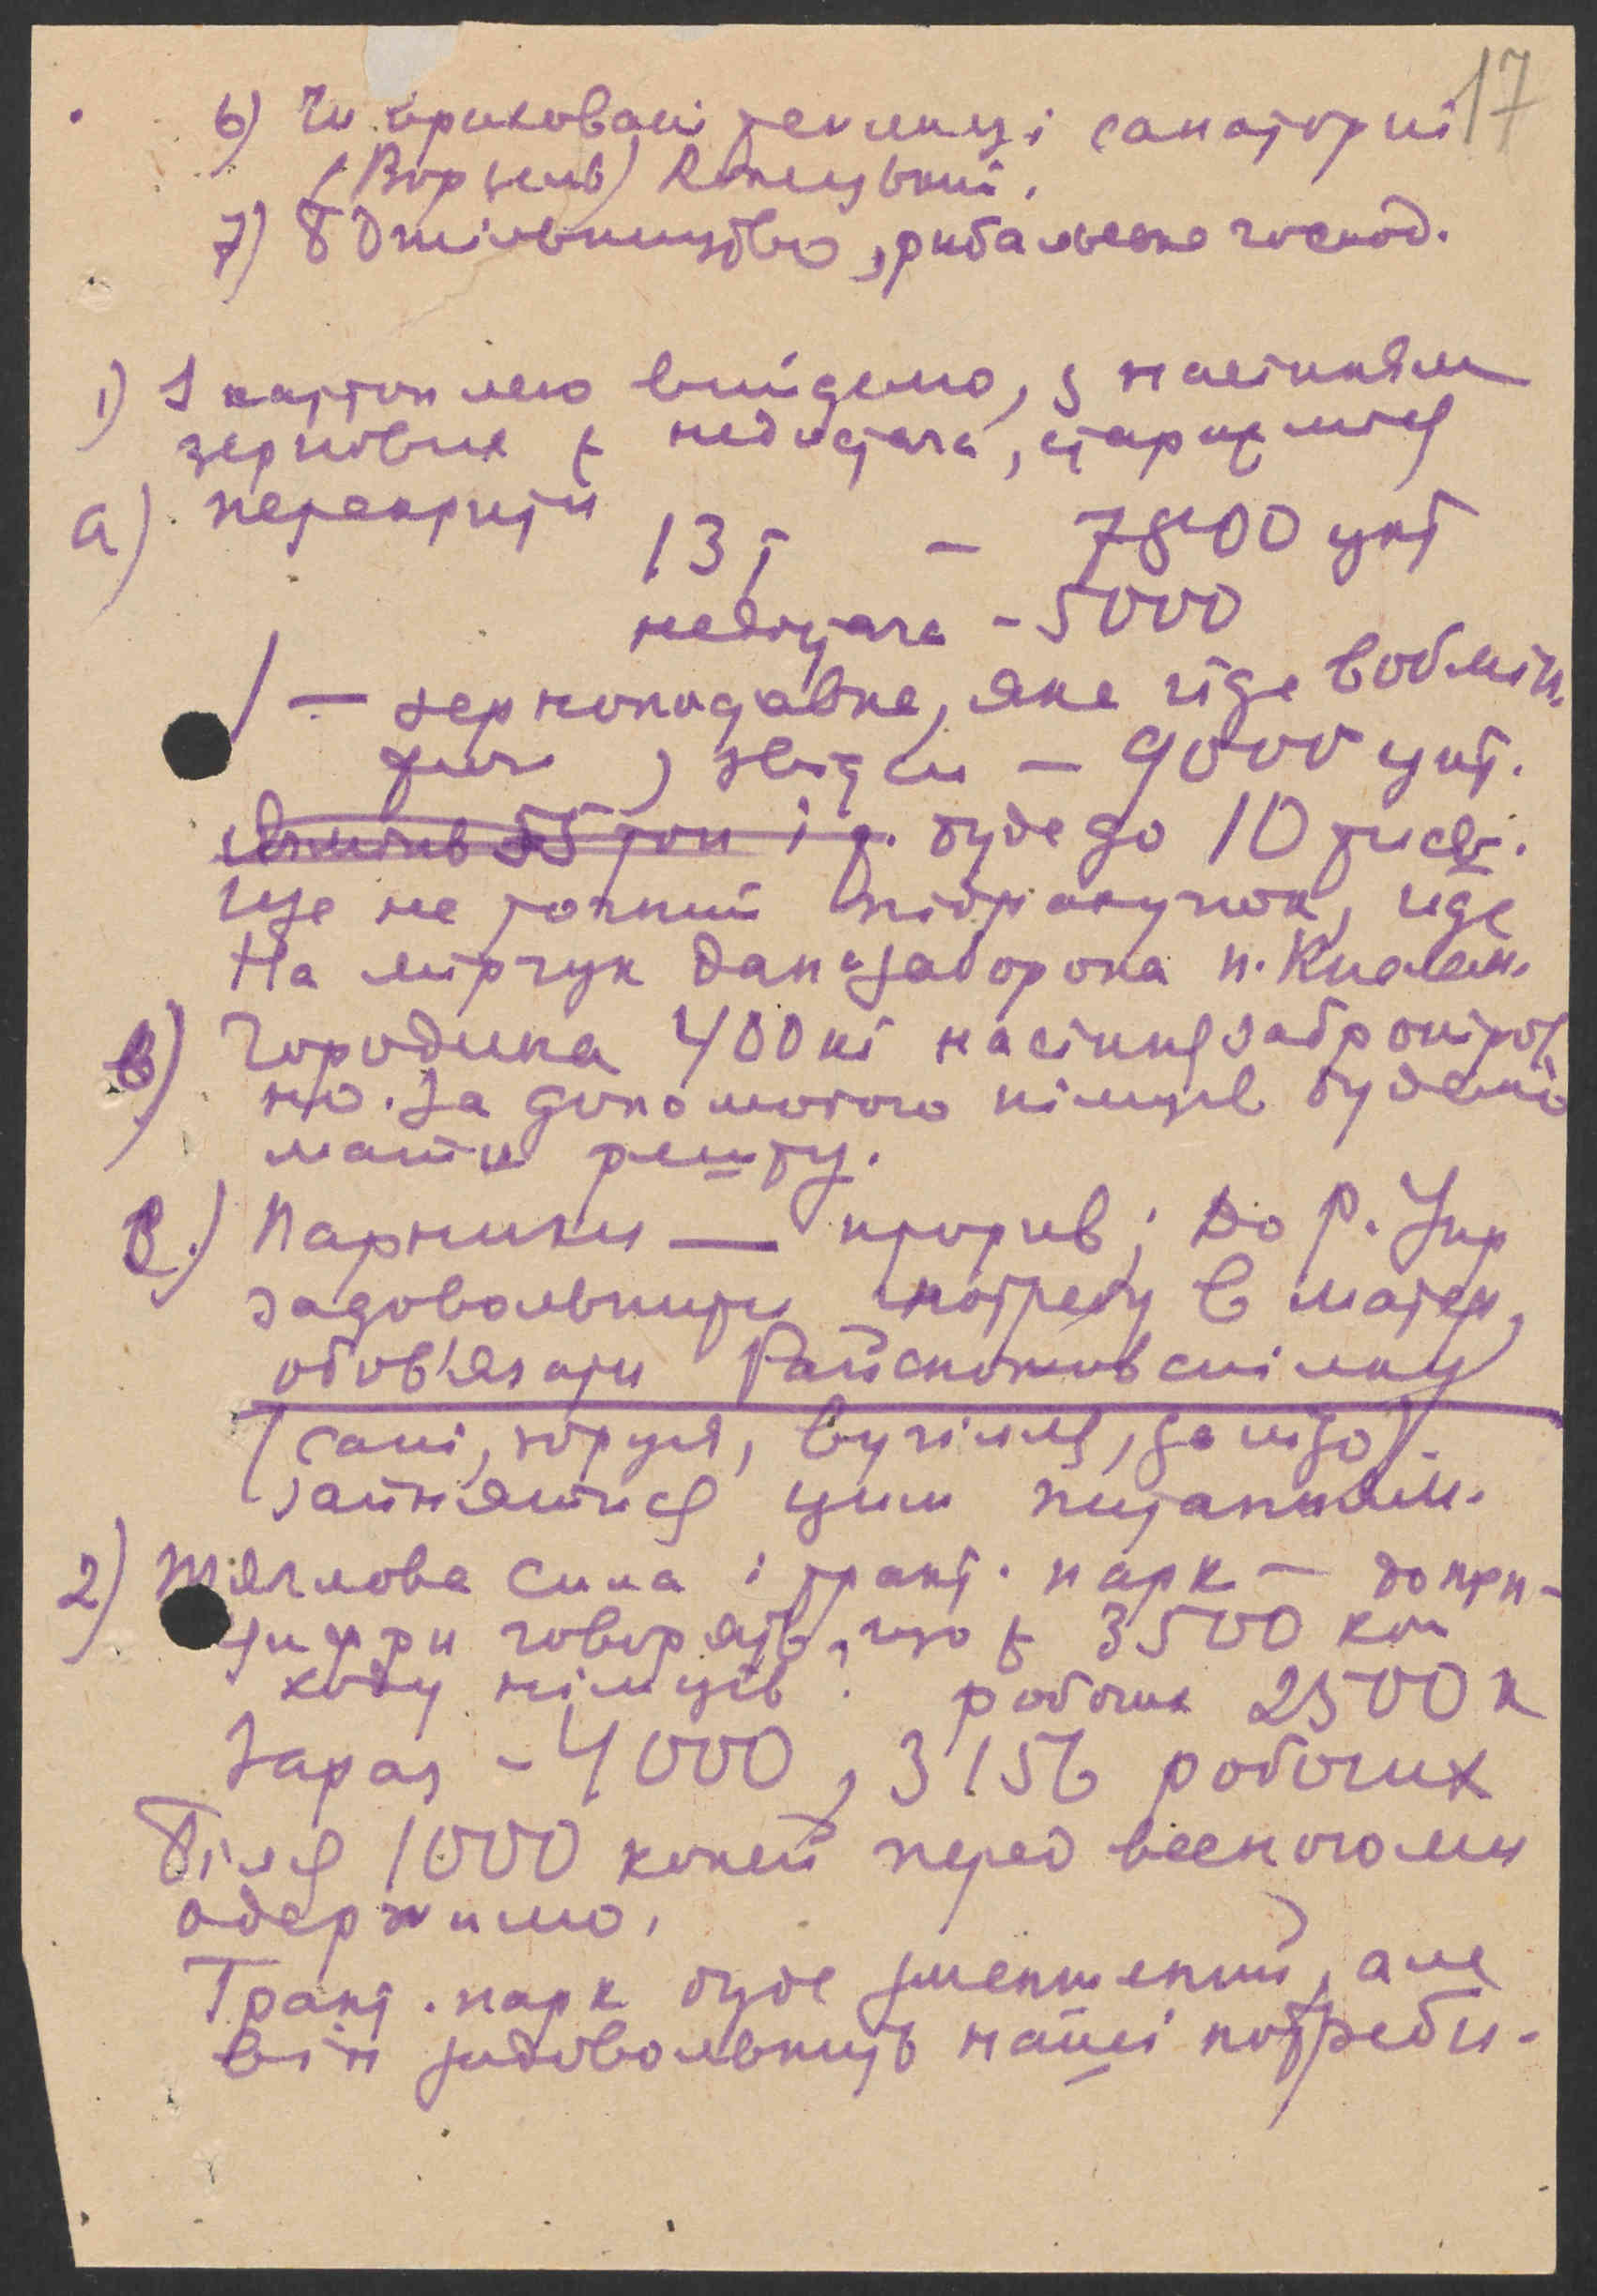 17
6) Чи враховані теплиці санаторні
(Ворзель)
7) Бджільництво, рибальське господ.
1) З картоплею вийдемо, з насінням
зернових є недостача, стараємося
перекрити
а) 13 т - 7800 цнт
недостача - 5000
— зернопоставке, яке йде в обмін.
, звідси - 9000 цнт.
55 тон і т. буде до 10 тисяч.
Ще не точний підрахунок, йде
На мірчук дана заборона п.
в) Городина 400 кі насіння забронірова
но. За допомогою німців будемо
мати решту.
в.) Парники — прорив; до Р. Упр
задовольнити потребу в матер,
обов'язати Райспоживспілку
(самі, коруля, вугілля, да
зайнятися цим питанням.
2) Тяглова сила і тракт. парк - до при-
цифри говорять, що є 3500 кон
ходу німців: робочих 2500 к
Зараз - 4000, 3156 робочих
Біля 1000 коней перед весною ми
одержимо.
Тракт. парк буде зменшений, але
він задовольнить наші потреби.